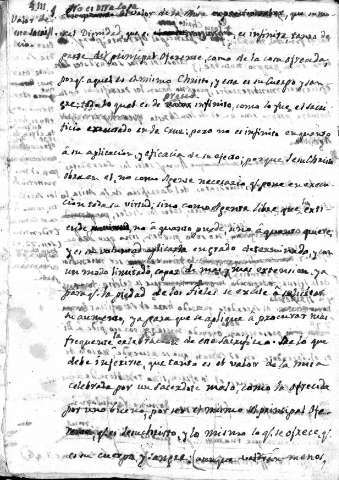 No es otra cosa
Valor de el valor de la Misa
ese sacrificio. Dignidad, que es infinita tanto de
parte del principal oferente, como de la cosa ofrecida,
porq. aquel es el mismo Christo, y esta es su Cuerpo, y san
gre: todo lo qual es de precio infinito, como lo fue el sacri
ficio en la Cruz; pero no es infinito en quanto
à su aplicacion, y eficacia de su efecto; porque Jesu Christo
obra en el, no como Agente necesario q. pone en execu
cion toda su virtud, sino como Agente libre que la exti
ende no à quanto puede, sino à quanto quiere,
y es en grado determinado, y con
un modo limitado, capaz de mas, y mas extension, ya
para q. la piedad de los fieles se excite à solicitar
su aumento, ya para que se aplique à procurar mas
frequente la celebracion de este sacrificio. De lo que
debe inferirse, que tanto es el valor de la misa
celebrada por un Sacerdote malo, como la ofrecida
por uno bueno, por ser el mismo el principal Ofe
rente, q. es Jesuchristo, y lo mismo lo q. se ofrece, q.
es su cuerpo y sangre; aunque menos,